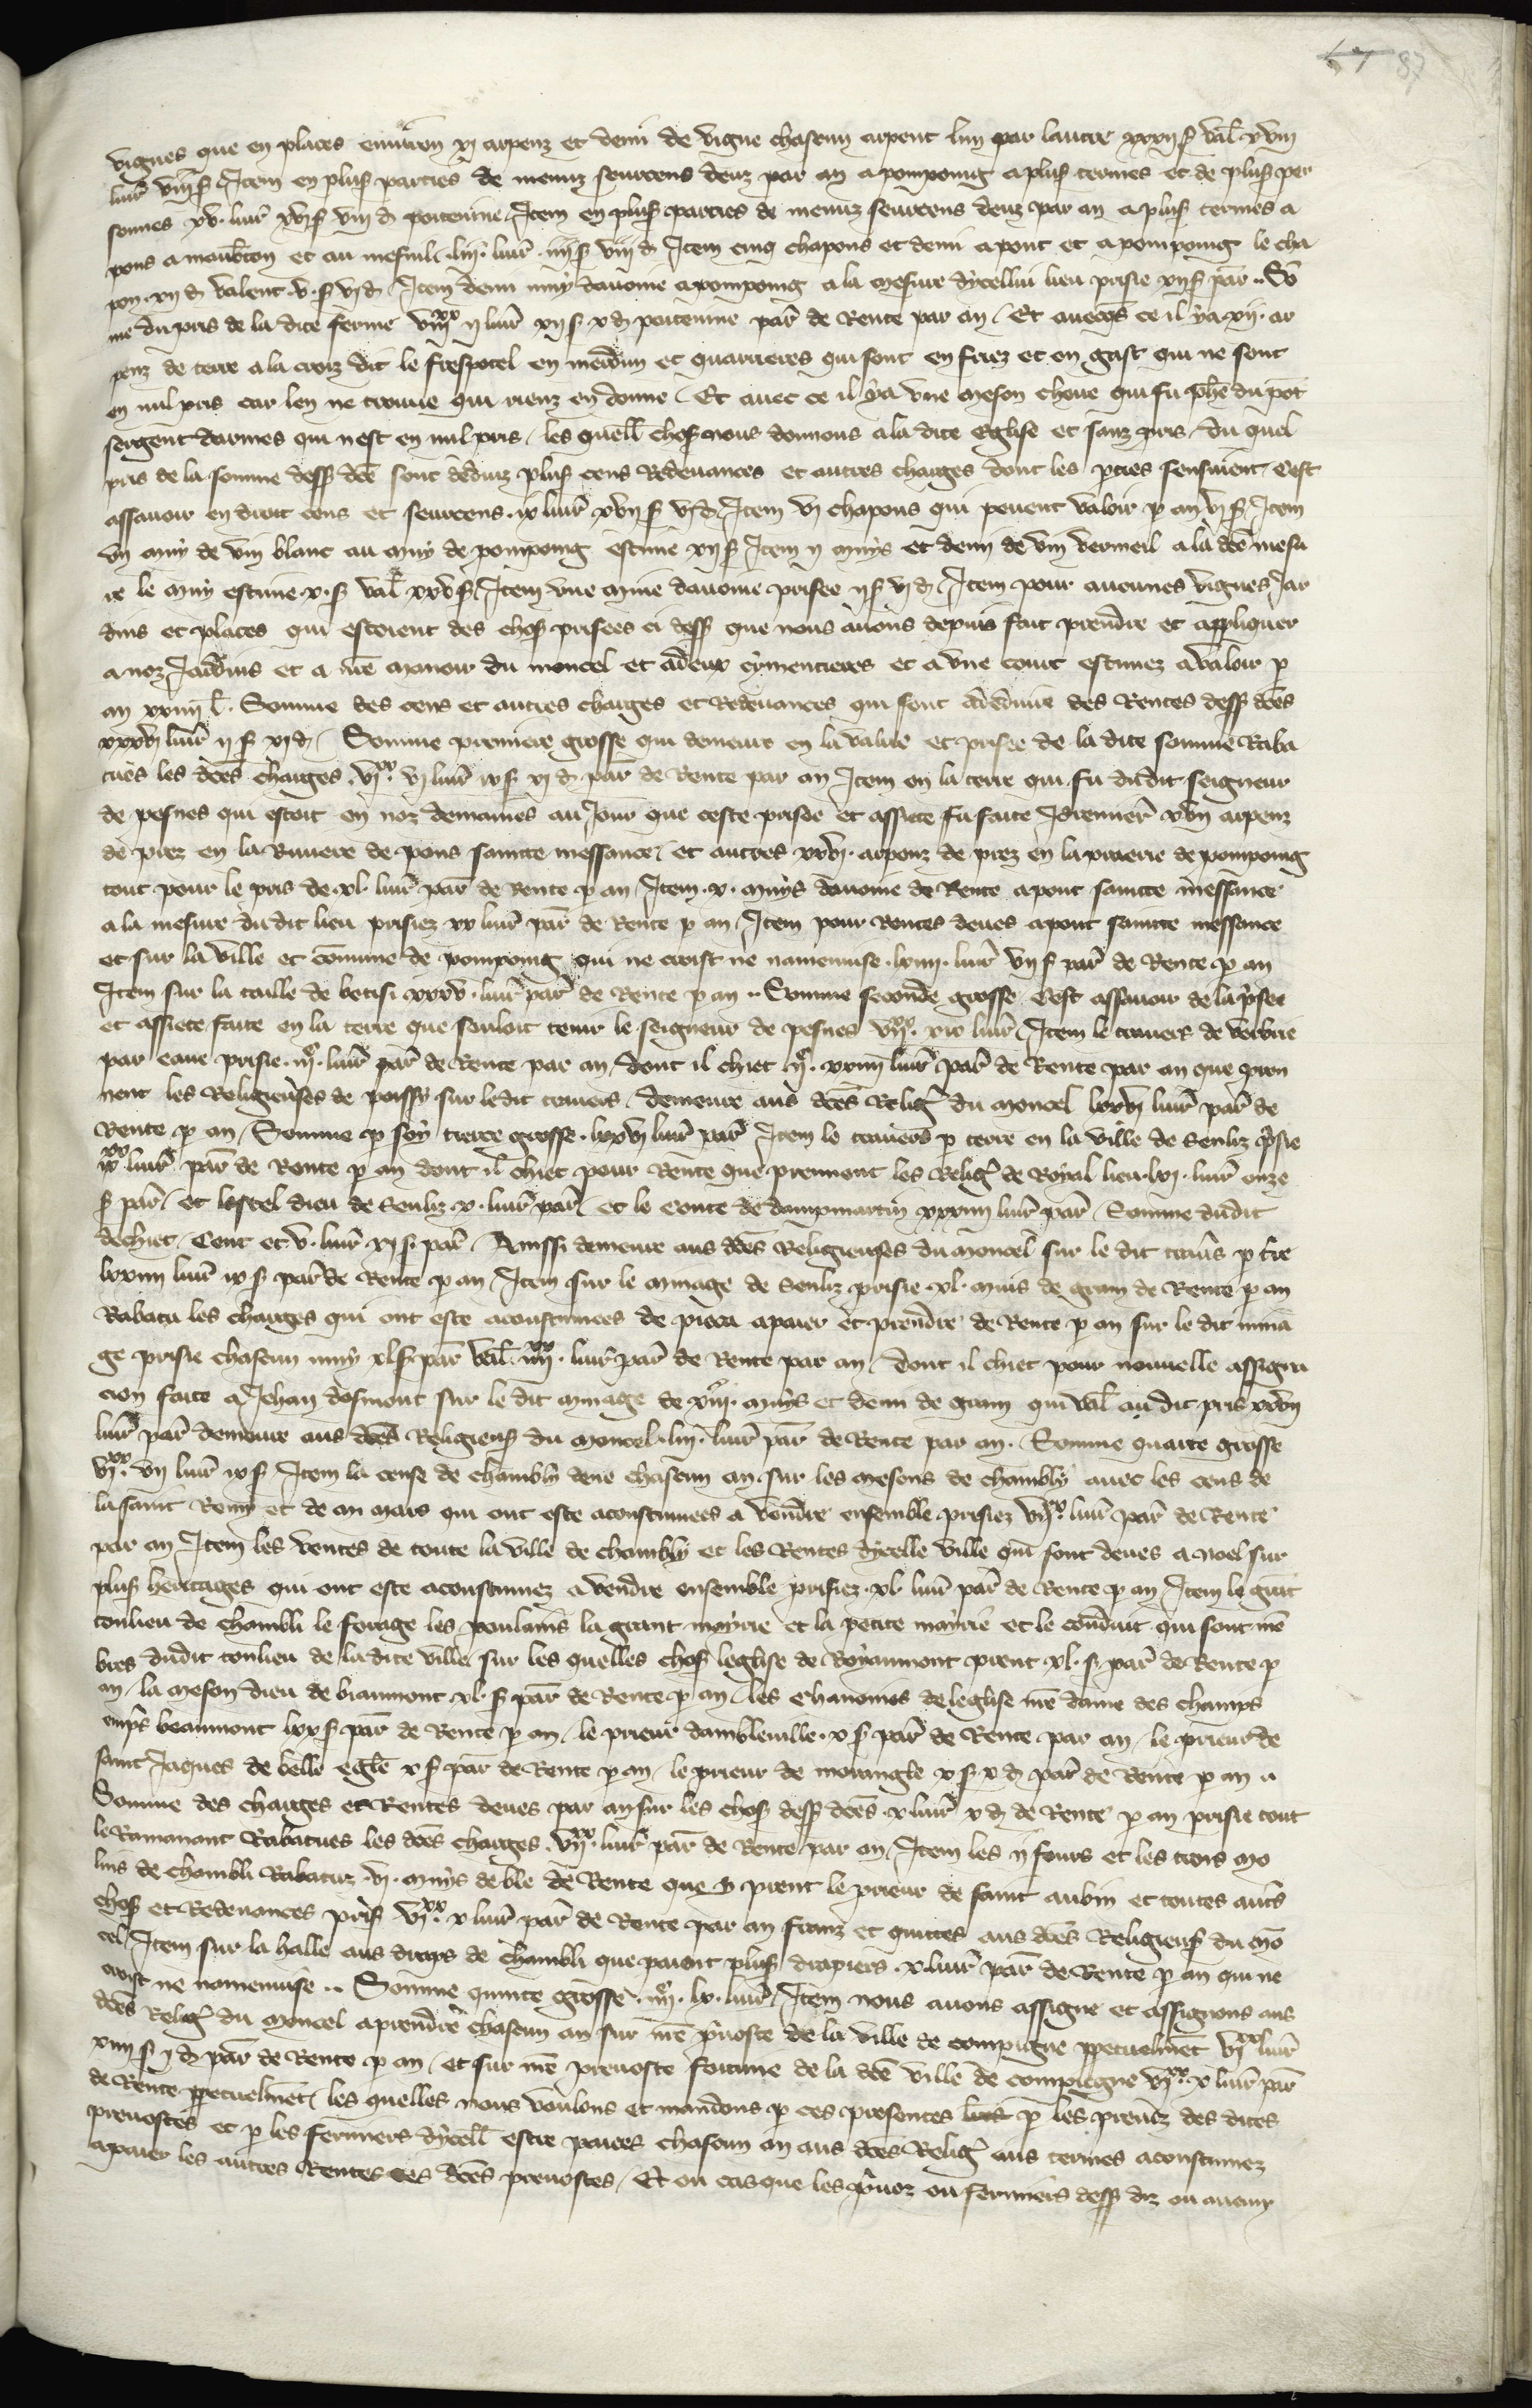 67 87
vignes que en places environ xj arpenz et demi de vigne chascun arpent lun par lautre xxxij s̃ val̃ xviij
liur̃ viij s̃ Item en plus̃ parties de menuz seurcens deuz par an a pompoing a plus̃ termes et de plus̃ per
sonnes xv. liur̃ xvj s̃ viij d̃ poitevine. Item en plus̃ parties de menuz seurcens deuz par an a plus̃ termes a
pons a et au mesnil. liij. liur̃ iiij s̃ viij d̃ Item cinq chapons et demi a pont et a pompoing le cha
pon. xij d̃ valent. v. s̃ vj d̃ Item demi muy davoine a pompoing a la mesure dycellui lieu prisie xij s̃ par̃. Sõ
me du pris de la dite ferme viijxx ij liur̃ xij s̃ x d̃ poitevine par̃ de Rente par an. Et avecques ce il ya xij. ar
penz de terre a la croiz dit le frespotel en et quarrieres qui sont en friez et en gast qui ne sont
en nul pris car len ne treuve qui rienz en donne. Et avec ce il ya une meson cheue qui fu du pont
sergent darmes qui nest en nul pris. les quell̃ chos̃ nous donnons a la dite Eglise et sanz pris. du quel
pris de la somme dess̃ dc̃e sont deduiz plus̃ cens Redevances et autres charges dont les p̃ties sensuient. Cest
assavoir en droit cens et seurcens. ix liur̃ xvij s̃ vj d̃. Item vj chapons qui pevent valoir p an vj s̃ Item
un muy de vin blanc au muy de pompoing estime xij s̃ Item ij muys et demi de vin vermeil a la dc̃e mesu
re le muy estime x. s̃ val̃ xxv s̃. Item une mine davoine prisee ij s̃ vj d̃. Item pour aucunes vignes Jar
dins et places qui estoient des chos̃ prisees ci dess̃ que nous avons depuis fait prendre et appliquer
a noz Jardins et a nr̃e manoir du moncel et a deux cymentieres et a une court estimez a valoir p
an xxiiij l̃. Somme des cens et autres charges et Redevances qui sont a deduire des Rentes dess̃ dc̃es
xxxvj liur̃ ij s̃ xj d̃. Somme premiere grosse qui demeure en la value et prisee de la dite somme Raba
tues les dc̃es charges. vjxx. vj liur̃ ix s̃ xj d̃ par̃ de Rente par an Item en la terre qui fu dudit seigneur
de pesnes qui estoit en noz demaines au Jour que ceste prisee et assiete fu faite xvij arpenz
de prez en la Riviere de pons saincte messance. et autres xxvj. arpenz de prez en la praerie de pompoing
tout pour le pris de. xl. liur̃ par̃ de Rente p an. Item. x. muys davoine de Rente a pont saincte messance
a la mesure dudit lieu prisiez xx liur̃ par̃ de Rente p an. Item pour Rentes deues a pont saincte messance
et sur la ville et com̃une de pompoing qui ne croist ne namenuise. lxiiij. liur̃ vij s̃ par̃ de Rente p an
Item sur la taille de betisi. xxxv. liur̃ par̃ de Rente p an. Somme seconde grosse. Cest assavoir de la p̃see
et assiete faite en la terre que souloit tenir le seigneur de pesnes vijxx. xix liur̃. Item le travers de verbrie
par eaue prisie. iijc. liur̃ par̃ de Rente par an. dont il chiet ijc. xxiiij liur̃ par̃ de Rente par an que pren
nent les Religieuses de poissy sur ledit travers. demeure aus dc̃es Religˀ du moncel lxxvj liur̃ par̃ de
Rente p an. Somme p soy tierce grosse. lxxvj liur̃ par̃ Item le travers p terre en la ville de Senliz p̃sie
ixxx liur̃ par̃ de Rente p an dont il chiet pour Rente que prennent les Religˀ de Royal lieu lxj. liur̃ onze
s̃ par̃. et lostel dieu de Senliz. x. liur̃ par̃. et le Conte de dampmartin xxxiiij liur̃ par̃. Somme dudit
dechiet. Cent et v. liur̃ xj s̃. par̃. Ainssi demeure aus dc̃es Religieuses du moncel sur le dit travs̃ p tr̃e
lxxiiij liur̃ ix s̃ par̃ de Rente p an. Item sur le minage de Senliz prisie. xl. muis de grain de Rente p an
Rabatu les charges qui ont este acoustumees de pieca a paier et prendre de Rente p an sur le dit mina
ge prisie chascun muy xl s̃ par̃ val̃. iiijxx. liur̃ par̃ de Rente par an. dont il chiet pour nouvelle assigna
cion faite a Jehan dosmont sur le dit minage de xiij. muys et demi de grain qui val̃ au dit pris xxvij
liur̃ par̃ demeure aus dc̃es Religieus̃ du moncel. liij. liur̃ par̃ de Rente par an. Somme quarte grosse
vjxx. vij liur̃ ix s̃ Item la cense de chambly deue chascun an sur les mesons de chambly avec les cens de
la saint Remy et de mi mars qui ont este acoustumees a vendre ensemble prisiez vijxx. liur̃ par̃ de Rente
par an Item les ventes de toute la ville de chambly et les Rentes dycelle ville qui sont deues a noel sur
plus̃ heritages qui ont este acoustumez a vendre ensemble prisiez. xl. liur̃ par̃ de Rente p an. Item le grant
tonlieu de chambli le forage les poulains la grant mayrie et la petite mayrie et le conduit qui sont mẽ
bres dudit tonlieu de ladite ville sur les quelles chos̃ leglise de Royaumont prent xl. s̃. par̃ de Rente p
an. la meson dieu de biaumont xl. s̃ par̃ de Rente p an. les Chanoines de leglise nr̃e dame des champs
emprs̃ beaumont lxx s̃ par̃ de Rente p an. le prieur dambleville. x s̃ par̃ de Rente par an. le prieur de
saint Jaques de belle egl̃e x s̃ par̃ de Rente p an. le prieur de morangle x s̃ x d̃ par̃ de Rente p an.
Somme des charges et Rentes deues par an sur les chos̃ dess̃ dc̃es. x liur̃ x d̃ de Rente p an prisie tout
le Ramanant Rabatues les dc̃es charges. vijxx. liur̃ par̃ de Rente par an. Item les ij fours et les trois mo
lins de chambli Rabatuz. vj. muys de ble de Rente que y prent le prieur de saint aubin et toutes autrs̃
chos̃ et Redevances pris̃ vjxx. x liur̃ par̃ de Rente par an franz et quittes aus dc̃es Religieus̃ du mõ
cel. Item sur la halle aus draps de chambli que paient plus̃ drapiers. x liur̃ par̃ de Rente p an qui ne
croist ne namenuise. Somme quinte grosse. iiijc. lx. liur̃. Item nous avons assigne et assignons aus
dc̃es Religˀ du moncel a prendre chascun an sur nr̃e p̃voste de la ville de compiegne ppetuelmẽt vjxx liur̃
xiiij s̃ ij d̃ par̃ de Rente p an. et sur nr̃e prevoste foraine de la dc̃e ville de compiegne vjxx. x liur̃ par̃
de Rente ppetuelmẽt. les quelles nous voulons et mandons p ces presentes p les prevoz des dites
prevostes et p les fermiers dycell̃ estre paiees chascun an aus dc̃es Religˀ aus termes acoustumez
a paier les autres Rentes des dc̃es prevostes. Et ou cas que les p̃voz ou fermiers dess̃ diz ou aucun